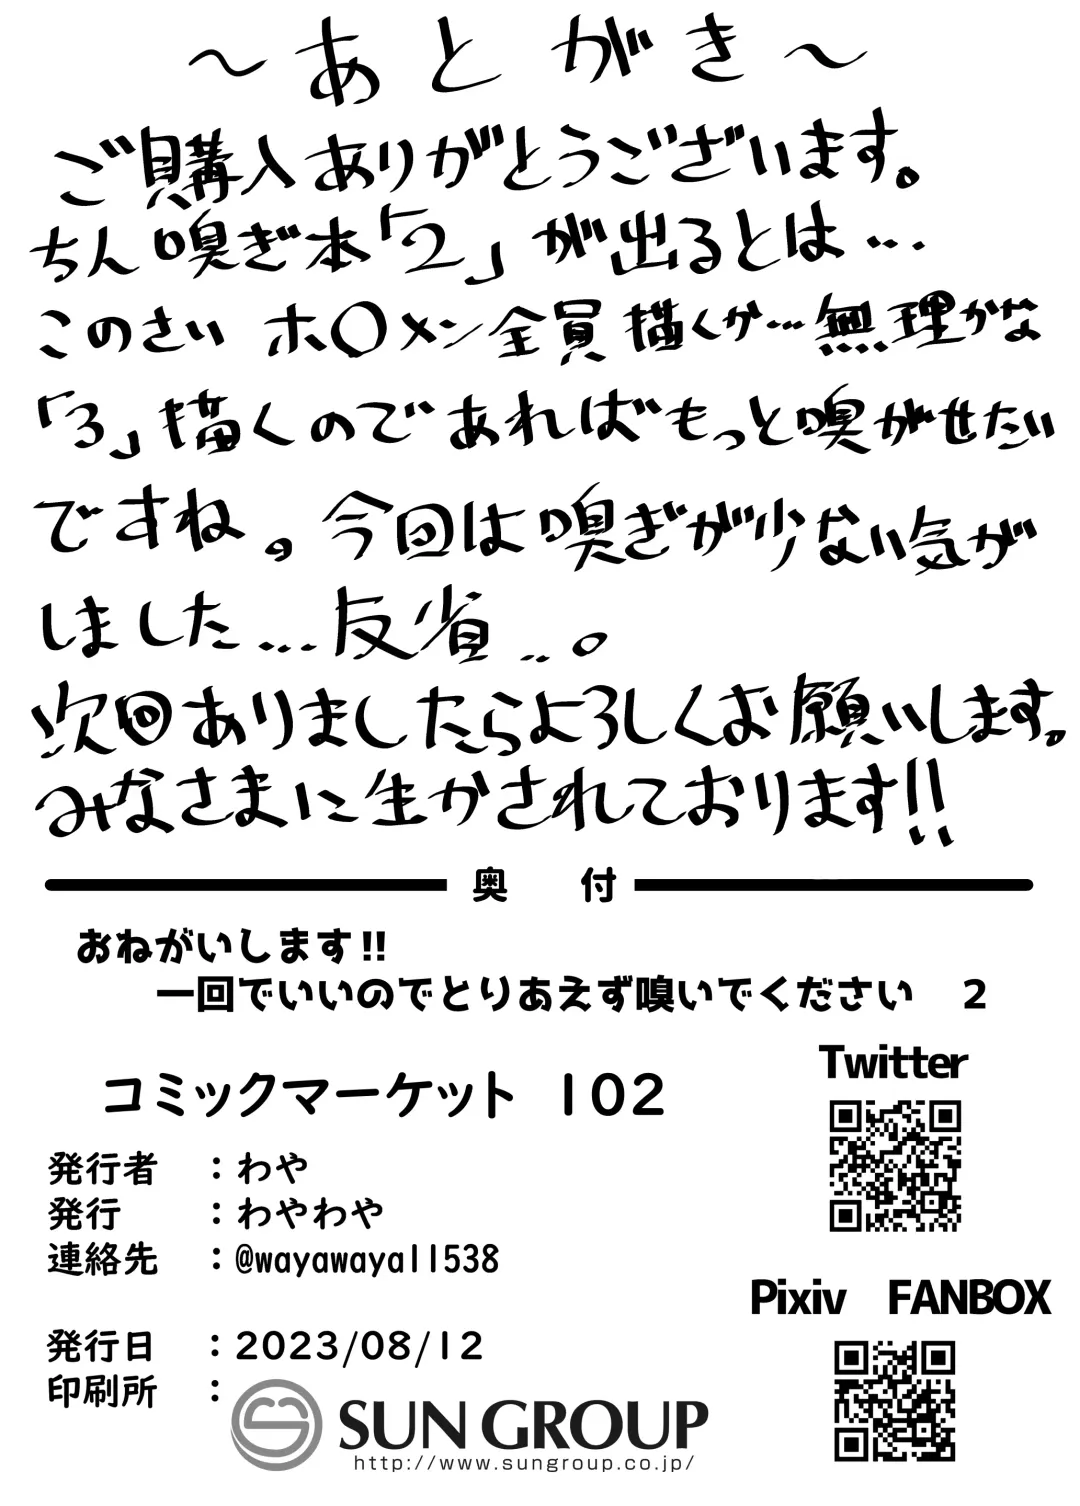 ～あとがき～
ご購入ありがとうございます。
ちん嗅ぎ本「2」が出るとは…
このさい ホ〇メン全員描くか…無理かな
「3」描くのであればもっと嗅がせたい
ですね。今回は嗅ぎが少ない気が
しました…反省…。
次回ありましたらよろしくお願いします。
みなさまに生かされております!!
奥　付
おねがいします!!
一回でいいのでとりあえず嗅いでください　2
コミックマーケット 102
発行者　：わや
発行　　：わやわや
連絡先　：@wayawaya11538
発行日　：2023/08/12
印刷所　：
SUN GROUP
http://www.sungroup.co.jp/
Twitter
Pixiv　FANBOX